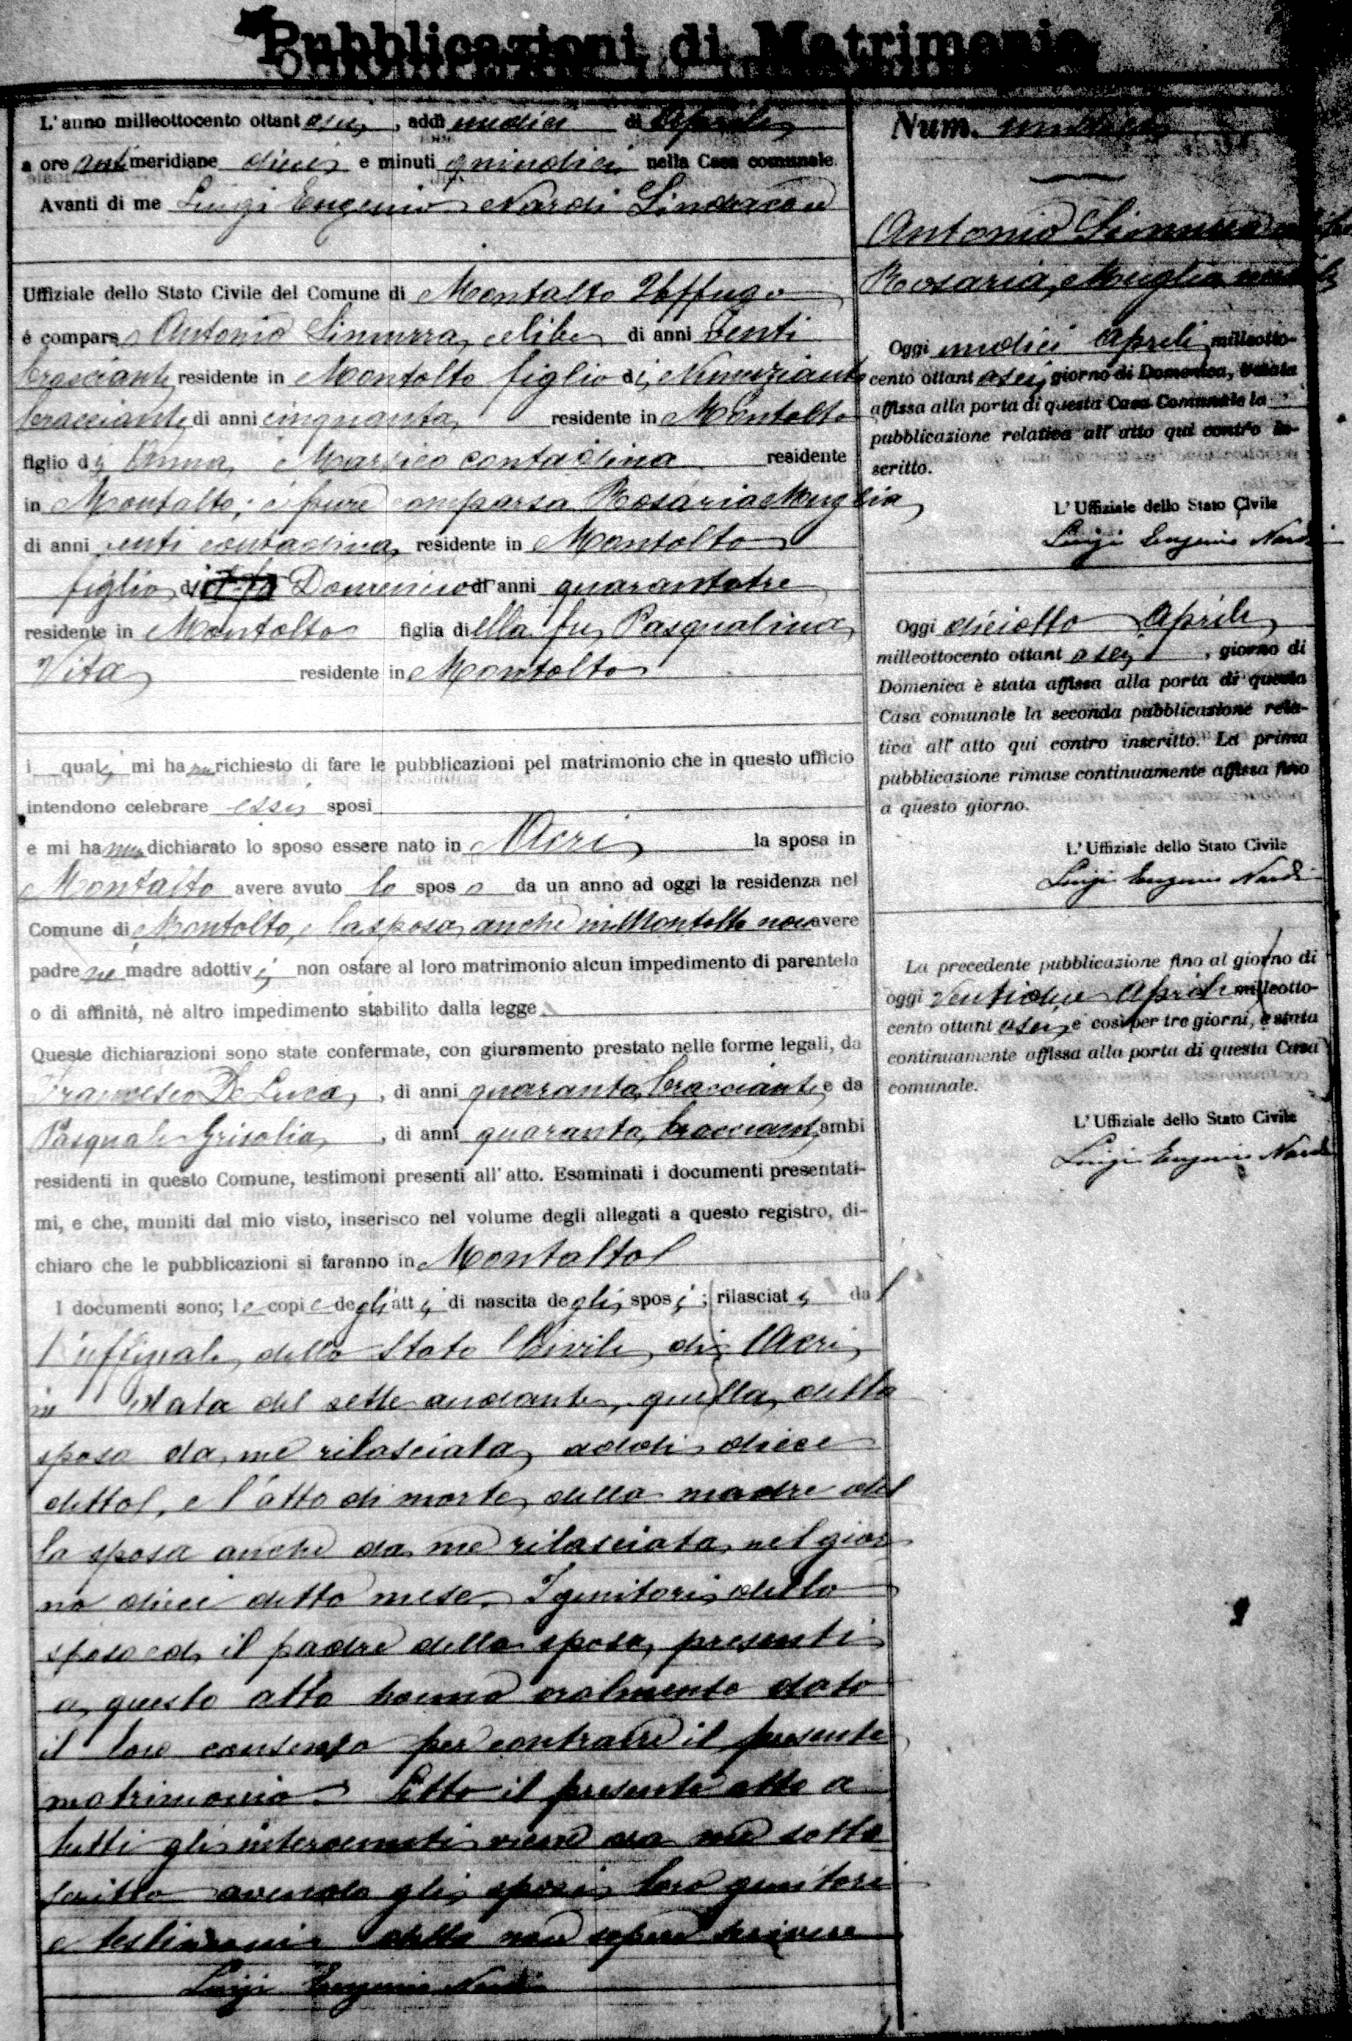 Pubblicazioni di Matrimonio
L'anno milleottocento ottant asei, addì undici di Aprile
a ore antimeridiane dieci e minuti quindici nella Casa comunale.
Avanti di me Luigi Eugenio Nardi Sindaco ed
Uffiziale dello Stato Civile del Comune di Montalto Uffugo
é comparso Antonio celibe di anni Venti
bracciante residente in Montalto figlio di Nunziante
bracciante di anni cinquanta residente in Montalto
figlio di Anna Marsico contadina residente
in Montalto; è pure comparsa Rosaria Muglia
di anni venti contadina residente in Montalto
figlia di Domenico di anni quarantatre
residente in Montalto figlia di ella fu Pasqualina
Vita residente in Montalto
i quali mi hanno richiesto di fare le pubblicazioni pel matrimonio che in questo ufficio
intendono celebrare essi sposi
e mi hanno dichiarato lo sposo essere nato in Acri la sposa in
Montalto avere avuto lo sposo da un anno ad oggi la residenza nel
Comune di Montalto, e la sposa anche in Montalto non avere
padre nè madre adottivi non ostare al loro matrimonio alcun impedimento di parentela
o di affinità, nè altro impedimento stabilito dalla legge
Queste dichiarazioni sono state confermate, con giuramento prestato nelle forme legali, da
Francesco De Luca, di anni quaranta, bracciante e da
Pasquale Grisolia, di anni quaranta, bracciante ambi
residenti in questo Comune, testimoni presenti all'atto. Esaminati i documenti presentati-
mi, e che, muniti dal mio visto, inserisco nel volume degli allegati a questo registro, di-
chiaro che le pubblicazioni si faranno in Montalto
I documenti sono; le copie degli atti di nascita degli sposi; rilasciati dal
l'uffiziale dello Stato Civile di Acri
in data del sette andante, quella della
sposa da me rilasciata addi diece
detto, e l'atto di morte della madre del
la sposa anche da me rilasciata nel gior
no dieci detto mese. I genitori dello
sposo ed il padre della sposa, presenti
a questo atto hanno oralmente dato
il loro consenso per contrarre il presente
matrimonio. Letto il presente atto a
tutti gli intervenuti viene da me sotto
scritto avendo gli sposi loro genitori
e testimoni detto non sapere scrivere
Luigi Eugenio Nardi
Num. undici
Antonio celibe
Rosaria Muglia nubile
Oggi undici Aprile milleotto-
cento ottant asei giorno di Domenica, è stata
affissa alla porta di questa Casa Comunale la
pubblicazione relativa all'atto qui contro in-
scritto.
L'Uffiziale dello Stato Civile
Luigi Eugenio Nardi
Oggi diciotto Aprile
milleottocento ottant asei, giorno di
Domenica è stata affissa alla porta di questa
Casa comunale la seconda pubblicazione rela-
tiva all'atto qui contro inscritto. La prima
pubblicazione rimase continuamente affissa fino
a questo giorno.
L'Uffiziale dello Stato Civile
Luigi Eugenio Nardi
La precedente pubblicazione fino al giorno di
oggi ventidue Aprile milleotto-
cento ottant asei, e così per tre giorni, è stata
continuamente affissa alla porta di questa Casa
comunale.
L'Uffiziale dello Stato Civile
Luigi Eugenio Nardi